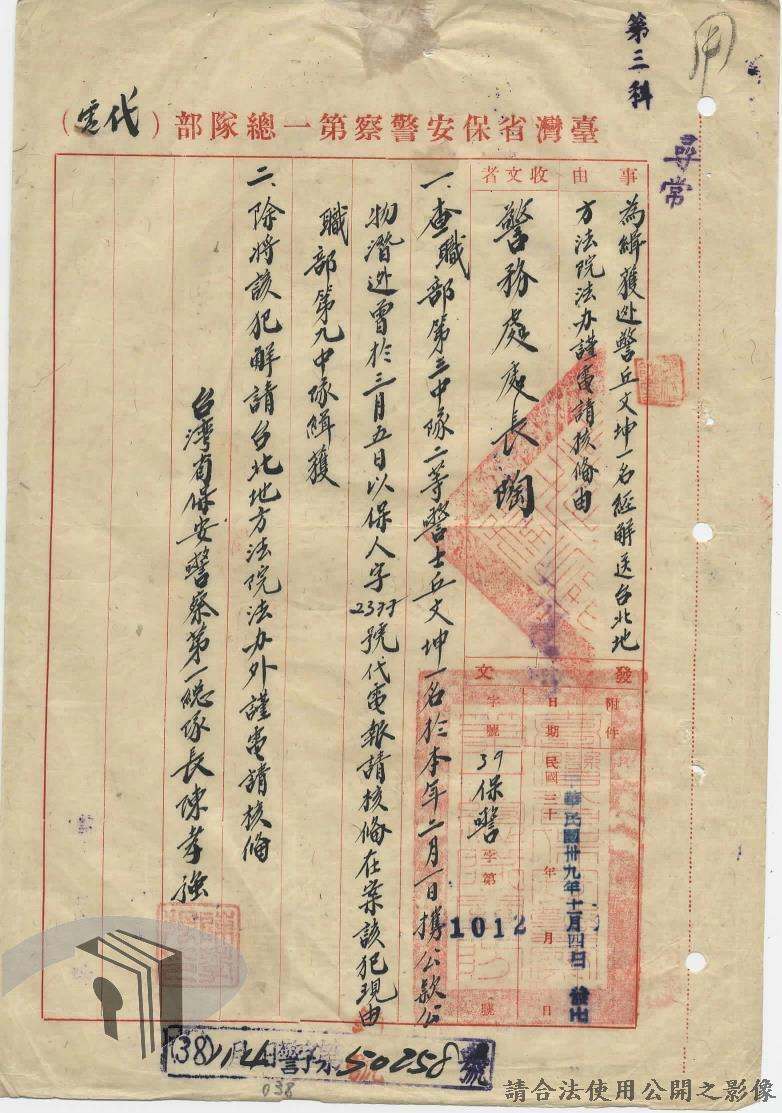 第三科
尋常
臺灣省保安警察第一總隊部（代電）
事由
為緝獲逃警丘文坤一名經解送台北地
方法院法办謹電請核備由
收文者
警務處處長陶
發文
附件
日期 民國三十 年 月 日
中華民國卅九年十一月四日 發出
字號 39保警 字第 1012 號
一、查職部第三中隊二等警士丘文坤一名於本年二月一日攜公款公
物潛逃曾於三月五日以保人字2377號代電報請核備在案該犯現由
職部第九中隊緝獲
二、除將該犯解請台北地方法院法办外謹電請核備
台灣省保安警察第一總隊長陳孝強
50258號
038
請合法使用公開之影像